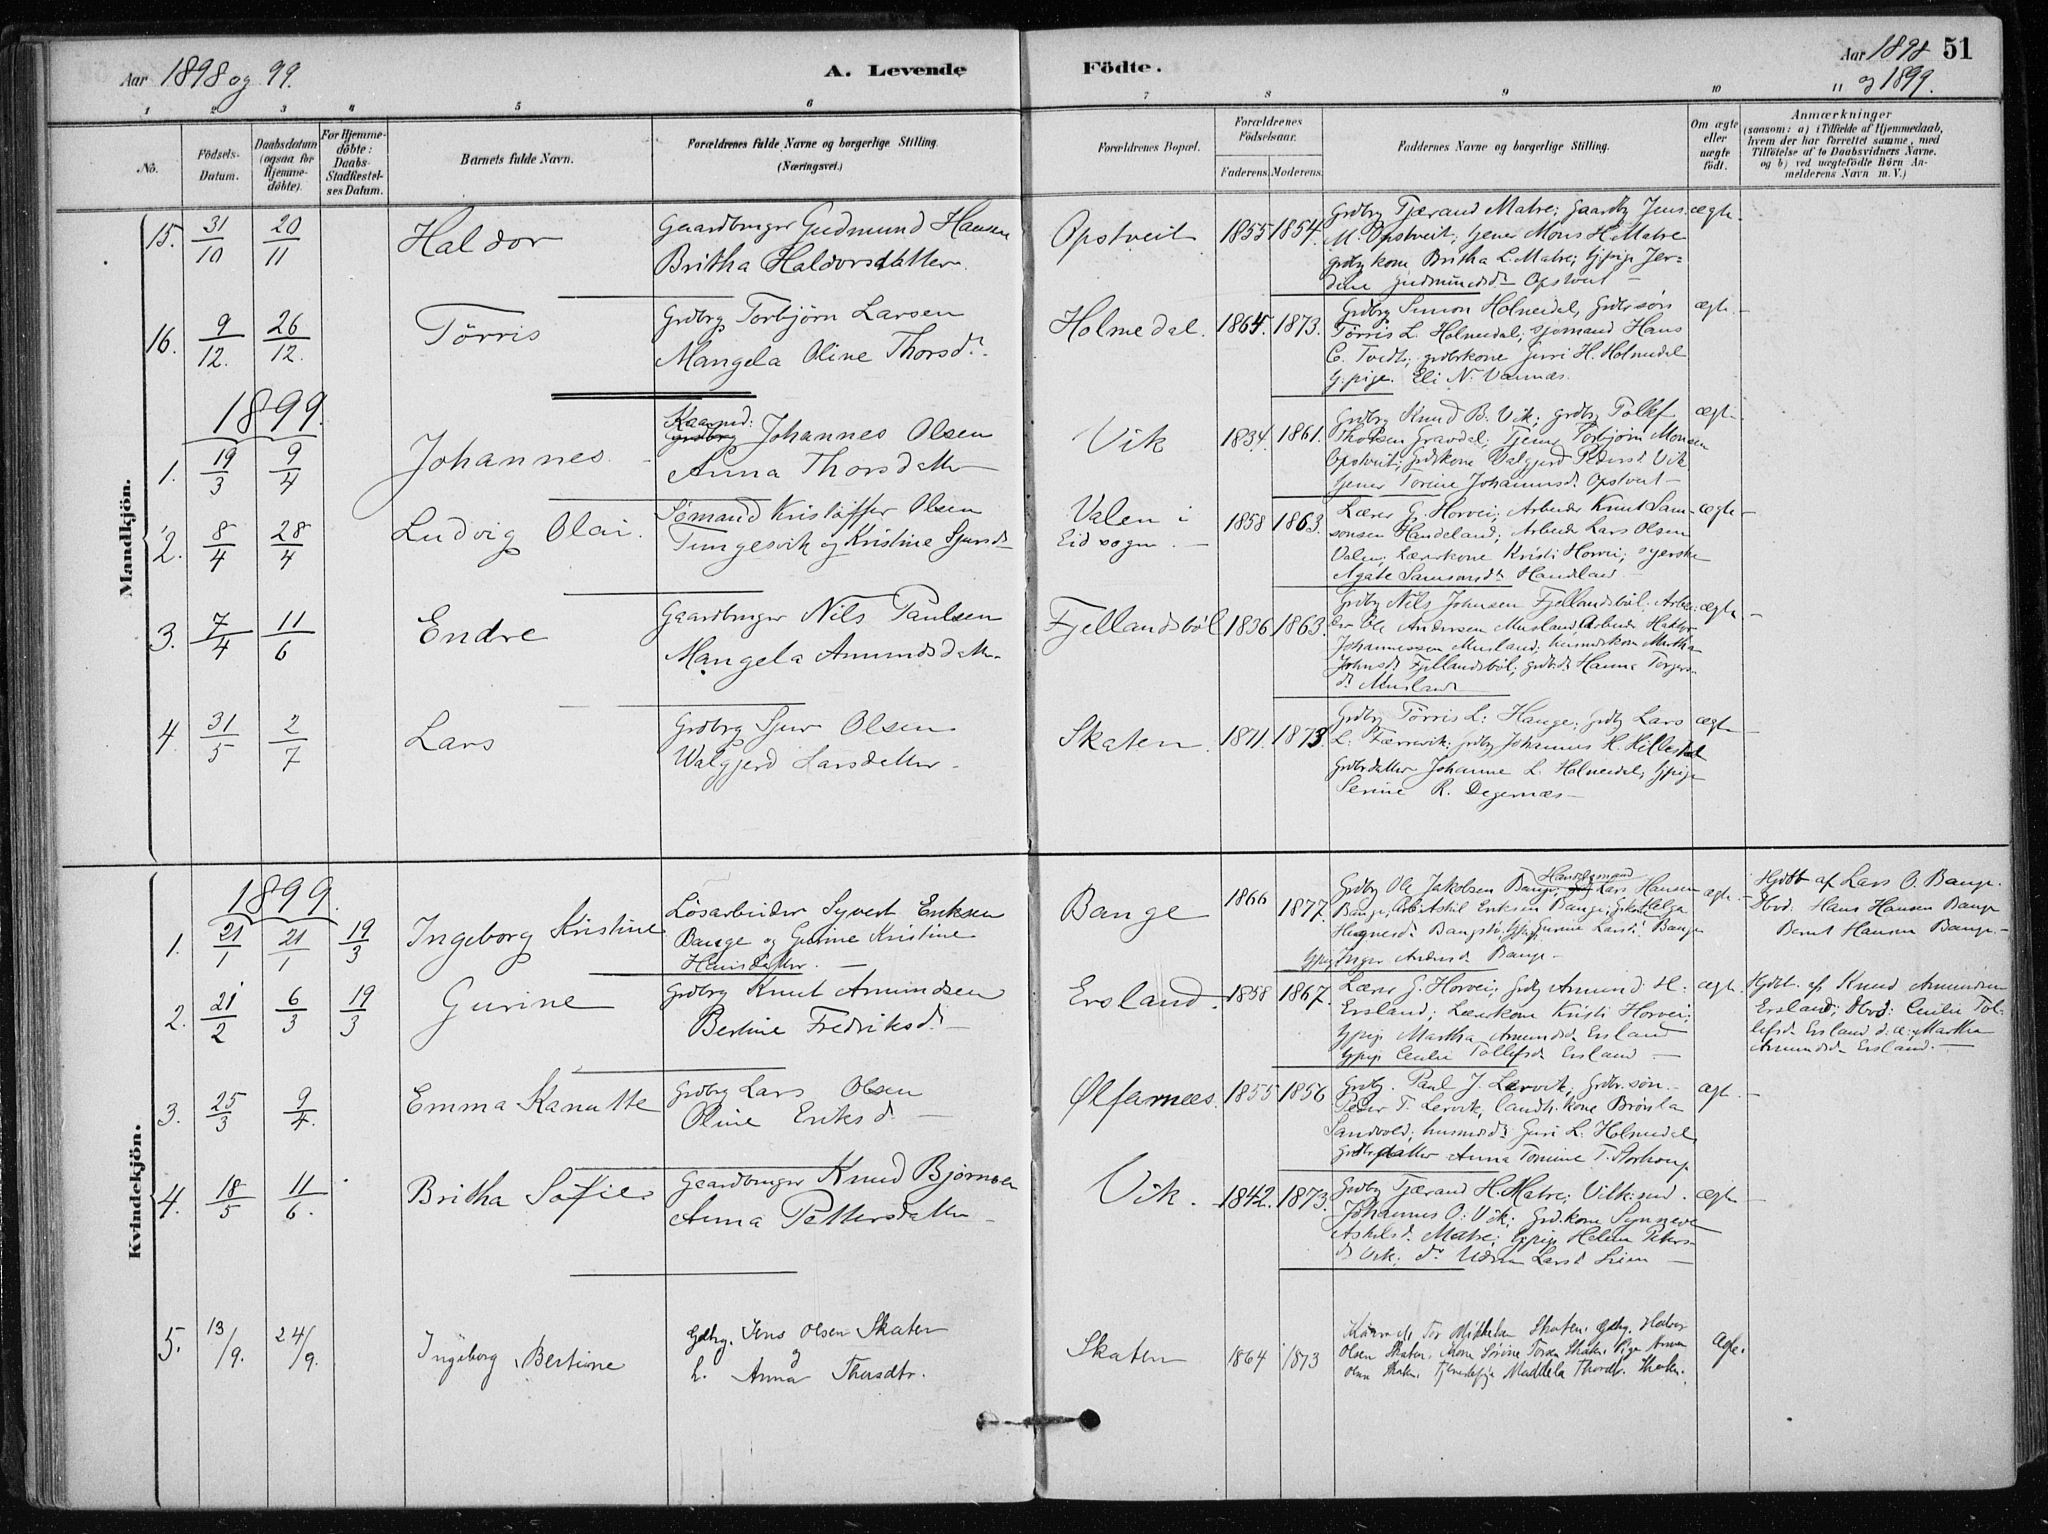 Aar 1898 og 99.
A. Levende
Födte.
Aar 1898
og 1899.
51
1 2 3 4 5 6 7 8 9 10 11
No.
Födsels-
Datum.
Daabsdatum
(ogsaa for
Hjemme-
döbte).
For Hjemme-
döbte:
Daabs-
Stadfæstel-
ses Datum.
Barnets fulde Navn.
Forældrenes fulde Navne og borgerlige Stilling.
(Næringsvei.)
Forældrenes Bopæl.
Forældrenes
Födselsaar.
Faderens. Moderens.
Faddernes Navne og borgerlige Stilling.
Om ægte
eller
uægte
födt.
Anmærkninger
(saasom: a) i Tilfælde af Hjemmedaab,
hvem der har forrettet samme, med
Tilföielse af to Daabsvidners Navne.
og b) ved uægtefödte Börn An-
melderens Navn m. V.)
Mandkjön.
15. 31/10 20/11
Haldor
Gaardbruger Gudmund Hansen
Britha Haldorsdatter.
Opstveit 1855 1854.
Grdbrg Tjærand Matre; Gaardbr Jens
M. Opstveit; tjener Mons H. Matre
grdbrkone Britha L. Matre;
Opstveit
ægte
16. 9/12. 26/12.
Tørris
Grdbrg Torbjørn Larsen
Mangela Oline Thorsdr.
Holmedal. 1865. 1873.
Grdbrg Simon Holmedal, Grdbr.søn
Tørris L. Holmedal; sjømand Hans
C. Tvedt; grdbrkone Guri H. Holmedal
Gjpige. Eli N. Vannæs.
ægte
1899.
1. 19/3 9/4
Johannes.
Kaarmd:
Johannes Olsen
Anna Thorsdatter
Vik 1834. 1861.
Grdbrg Knud B. Vik; grdbrg Tollef
Thorsen Gravdal; Tjener Torbjørn Monsen
Opstveit; Grdbrkone Valgjerd Pedersd. Vik
tjener Torine Johannesd. Opstveit
ægte
2. 8/4 28/4
Ludvig Olai.
Sømand Kristoffer Olsen
Tungesvik og Kristine Sjursd.
Valen i
Eid sogn. 1858 1863.
Lærer G. Horvei; Arbeider Knut Sam-
sonsen Handeland; Arbeider Lars Olsen
Valen; Lærerkone Kristi Horvei; syerske
Agate Samsonsdr. Handland
ægte
3. 7/4 11/6
Endre
Gaardbruger Nils Paulsen
Mangela Amundsdatter
Fjellandsböl 1836 1863.
Grdbrg Nils Johnsen Fjellandsböl; Arbei-
der Ole Andersen Musland; Arbeider Haktor
Johannessen Musland; husmdskone Martha
Johnsd. Fjellandsböl; grdbrd. Hanna Torgers-
d. Musland
ægte
4. 31/5 2/7
Lars
Grdbrg Sjur Olsen
Walgjerd Larsdatter
Skaten. 1871. 1873
Grdbrg Tørris L. Hauge; grdbrg Lars
L. Færrevik; grdbrg Johannes H. Hillestad
Grdbrdatter Johanne L. Holmedal; Gjpige
Serine R. Degernæs
ægte
Kvindekjön.
1899.
1. 21/1 21/1 19/3
Ingeborg Kristine
Løsarbeider Syvert Eriksen
Bauge og Gurine Kristine
Hansdatter.
Bauge 1866 1877.
Grdbrg Ole Jakobsen Bauge; Handelsmand Lars Hansen
Bauge; Arb. Askil Eriksen Bauge; Gurine Larsd. Bauge
Gjpig Inger Andersd. Bauge
ægte
Hjdbt af Lars O. Bauge.
Hvd: Hans Hansen Bauge
Bernt Hansen Bauge.
2. 21/2 6/3 19/3
Gurine
Grdbrg Knut Amundsen
Bertine Fredriksd.
Ersland. 1858 1867.
Lærer G. Horvei; Grdbrg Amund H.
Ersland; Lærerkone Kristi Horvei;
Gjpige Martha Amundsd. Ersland
Gjpige Cecilie Tollefsd. Ersland
ægte
Hjdbt. af Knud Amundsen
Ersland; Hvd: Cecilie Tol-
lefsd. Ersland & Martha
Amundsd. Ersland.
3. 25/3 9/4.
Emma Kanutte
Grdbrg Lars Olsen
Oline Eriksd.
Ølfarnæs. 1855 1856
Grdbrg. Paul J. Lervik; Grdbr.søn
Peder T. Lervik, landh.kone Brønla
Sandvold; husmdsd. Guri L. Holmedal
grdbrdatter Anna Tomine T. Storhoug
ægte
4. 18/5 11/6.
Britha Sofie
Gaardbruger Knud Bjørnsen
Anna Pettersdatter
Vik. 1842. 1873.
Grdbrg Tjærand H. Matre; Vilk.md.
Johannes O. Vik; Grd.kone Synneve
Askilsd. Matre; Gjpige Helene Peters-
d. Vik; do Larsd. Lien
ægte
5. 13/9. 24/9.
Ingeborg Bertine
Gdbrg. Jens Olsen Skaten
og
h. Anna Thorsdtr.
Skaten 1864 1873
Tor Mikkelsen Skaten, Gdbrg. Halvor
Olsen Skaten, Kone Sørine Torsen Skaten, Pige Anna
Olsen Skaten, Tjenestepige Maddela Thorsdtr. Skaten.
ægte.